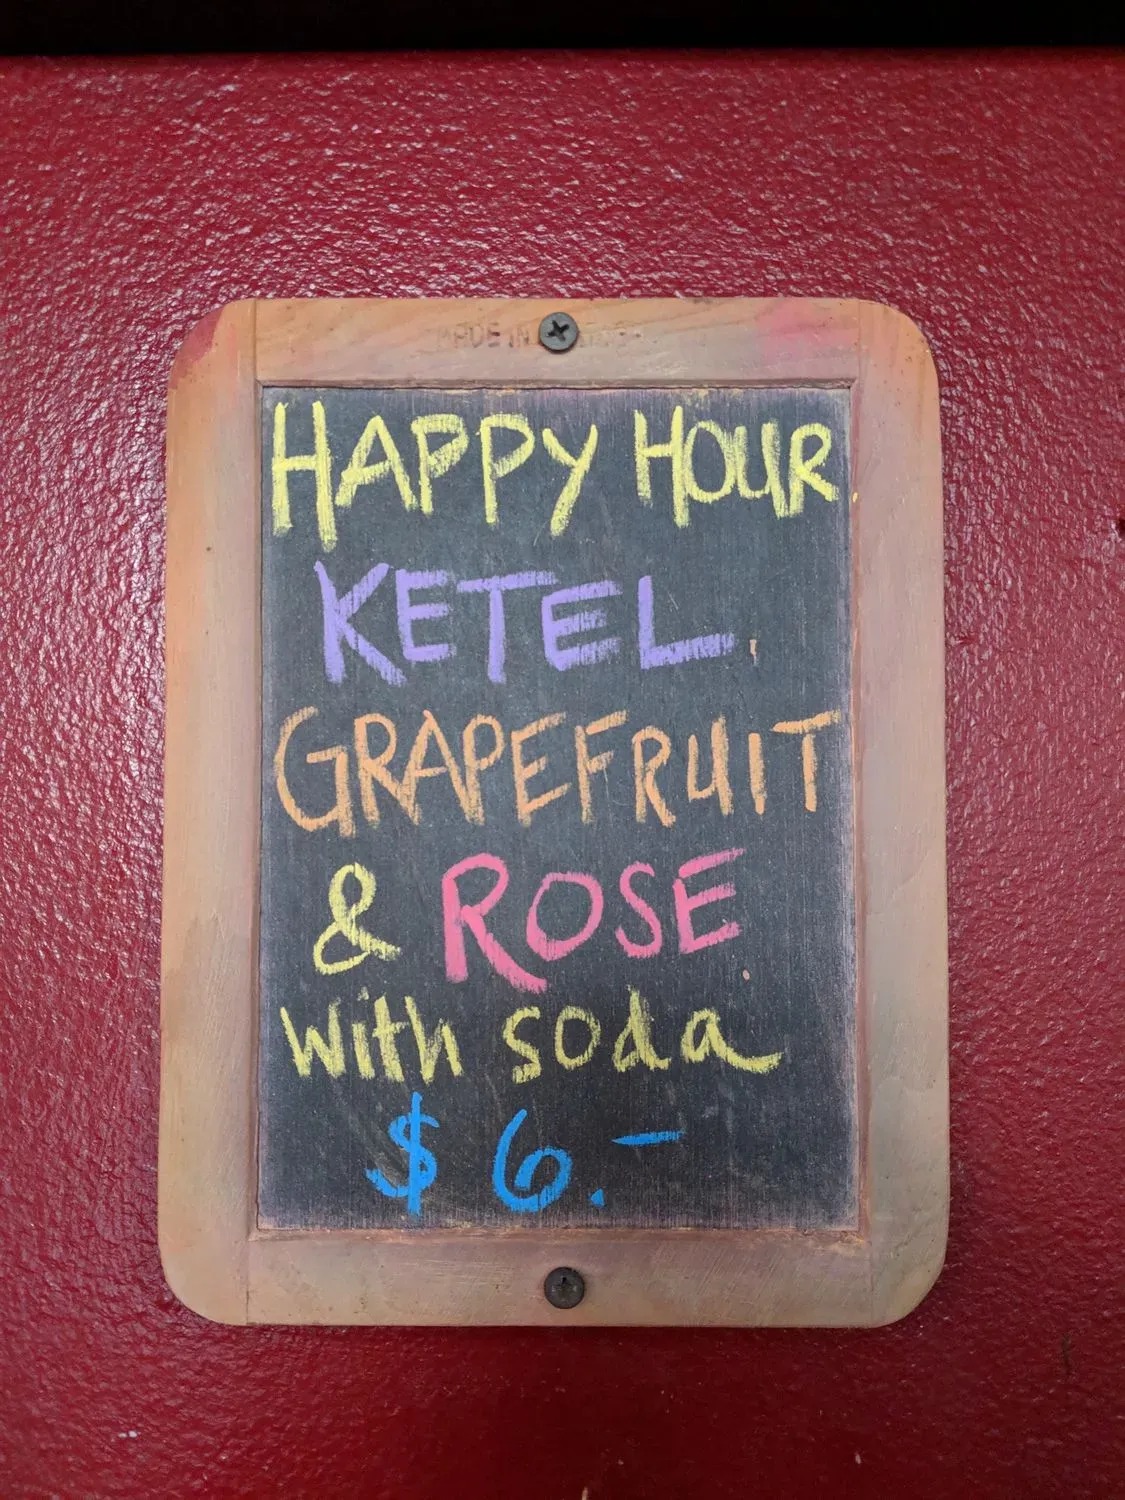 MADE IN
HAPPY HOUR
KETEL
GRAPEFRUIT
& ROSE
with soda
$ 6.-